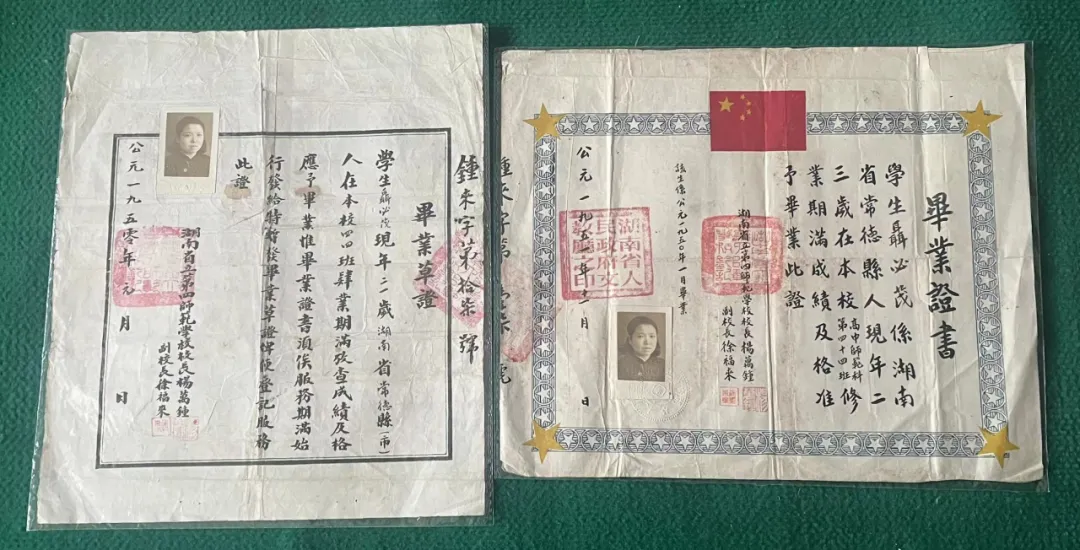 鍾來字第拾柒號
畢業草證
學生聶必茂現年二二歲湖南省常德縣(市)
人在本校四四班肄業期滿攷查成績及格
應予畢業惟畢業證書須俟服務期滿始
行發給特暫發畢業草證俾便登記服務
此證
湖南省立第四師範學校校長楊萬鍾
副校長徐福來
公元一九五零年元月 日
畢業證書
學生聶必茂係湖南
省常德縣人現年二
三歲在本校高中師範科第四十四班修
業期滿成績及格准
予畢業此證
湖南省立第四師範學校校長楊萬鍾
副校長徐福來
該生係公元一九五〇年一月畢業
公元一九五一年十一月 日
湖南省人民政府文教廳之印